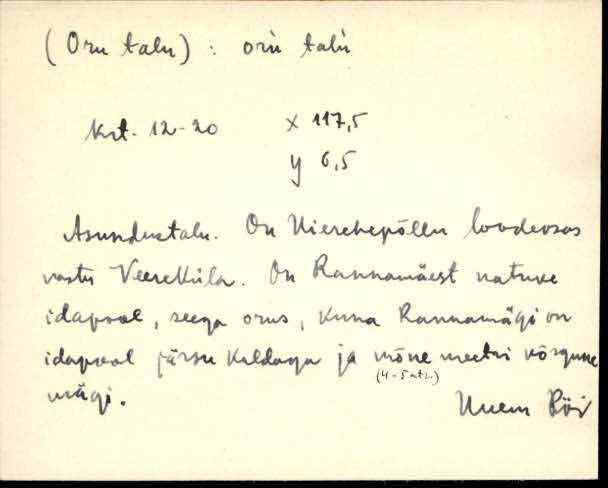 (Oru talu) : orù talù
Krt. 12-20 x 117,5
y 6,5
Asundustalu. On Vierehepõllu loodeosas
vastu Veereküla. On Rannamäest natuke
idapool, seega orus, kuna Rannamägi on
idapool järsu kaldaga ja mõne meetri kõrgune
(4-5 mtr.)
mägi.